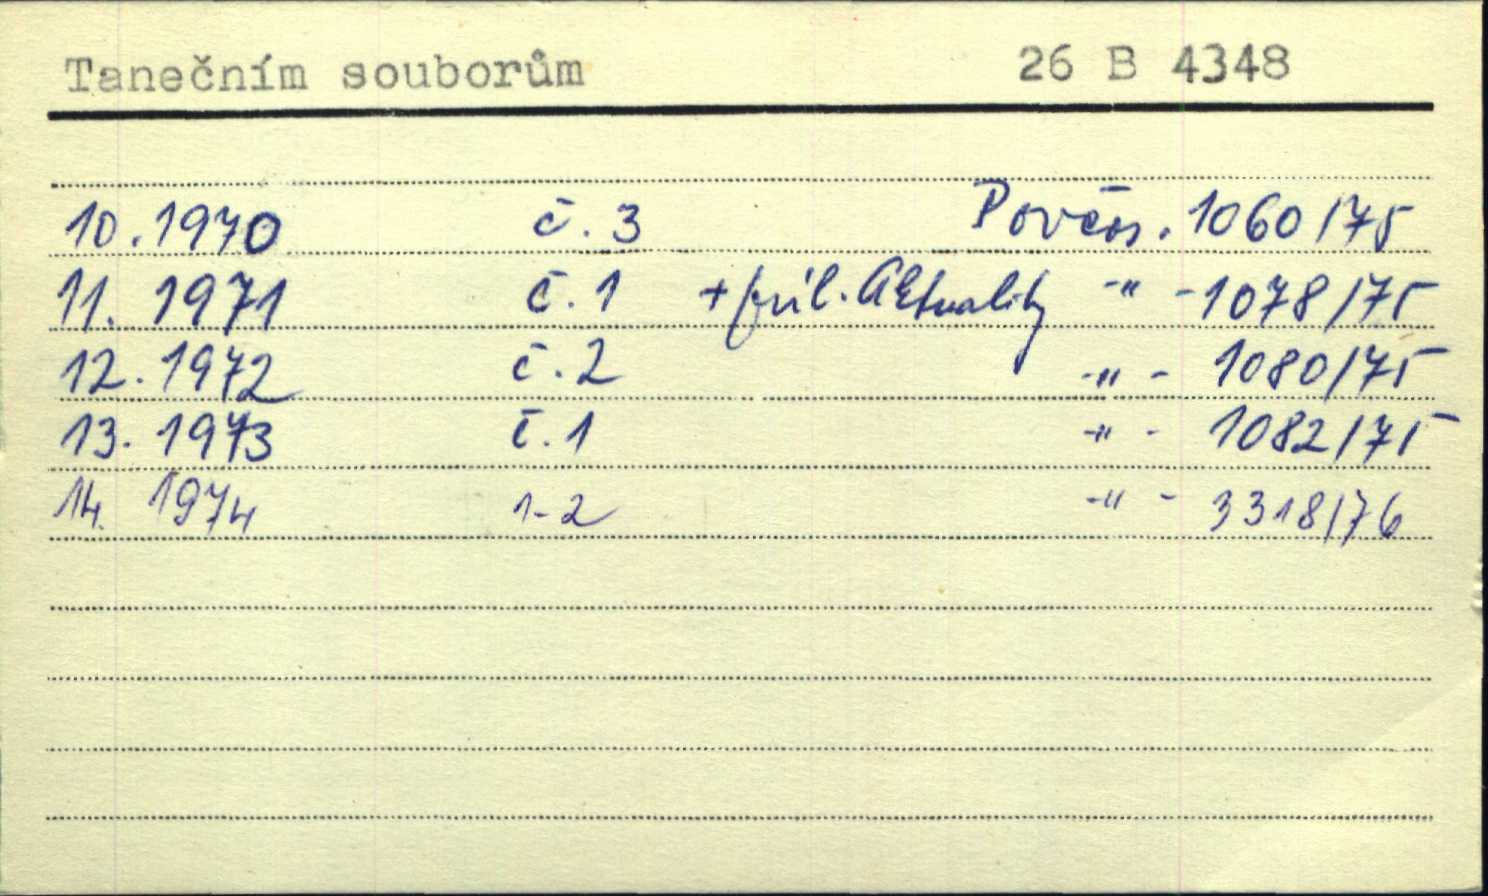 Tanečním souborům 26 B 4348
10. 1970 č. 3 Povčas. 1060/75
11. 1971 č. 1 + příl. Aktuality -"- 1078/75
12. 1972 č. 2 -"- 1080/75
13. 1973 č. 1 -"- 1082/75
14. 1974 1-2 -"- 3318/76